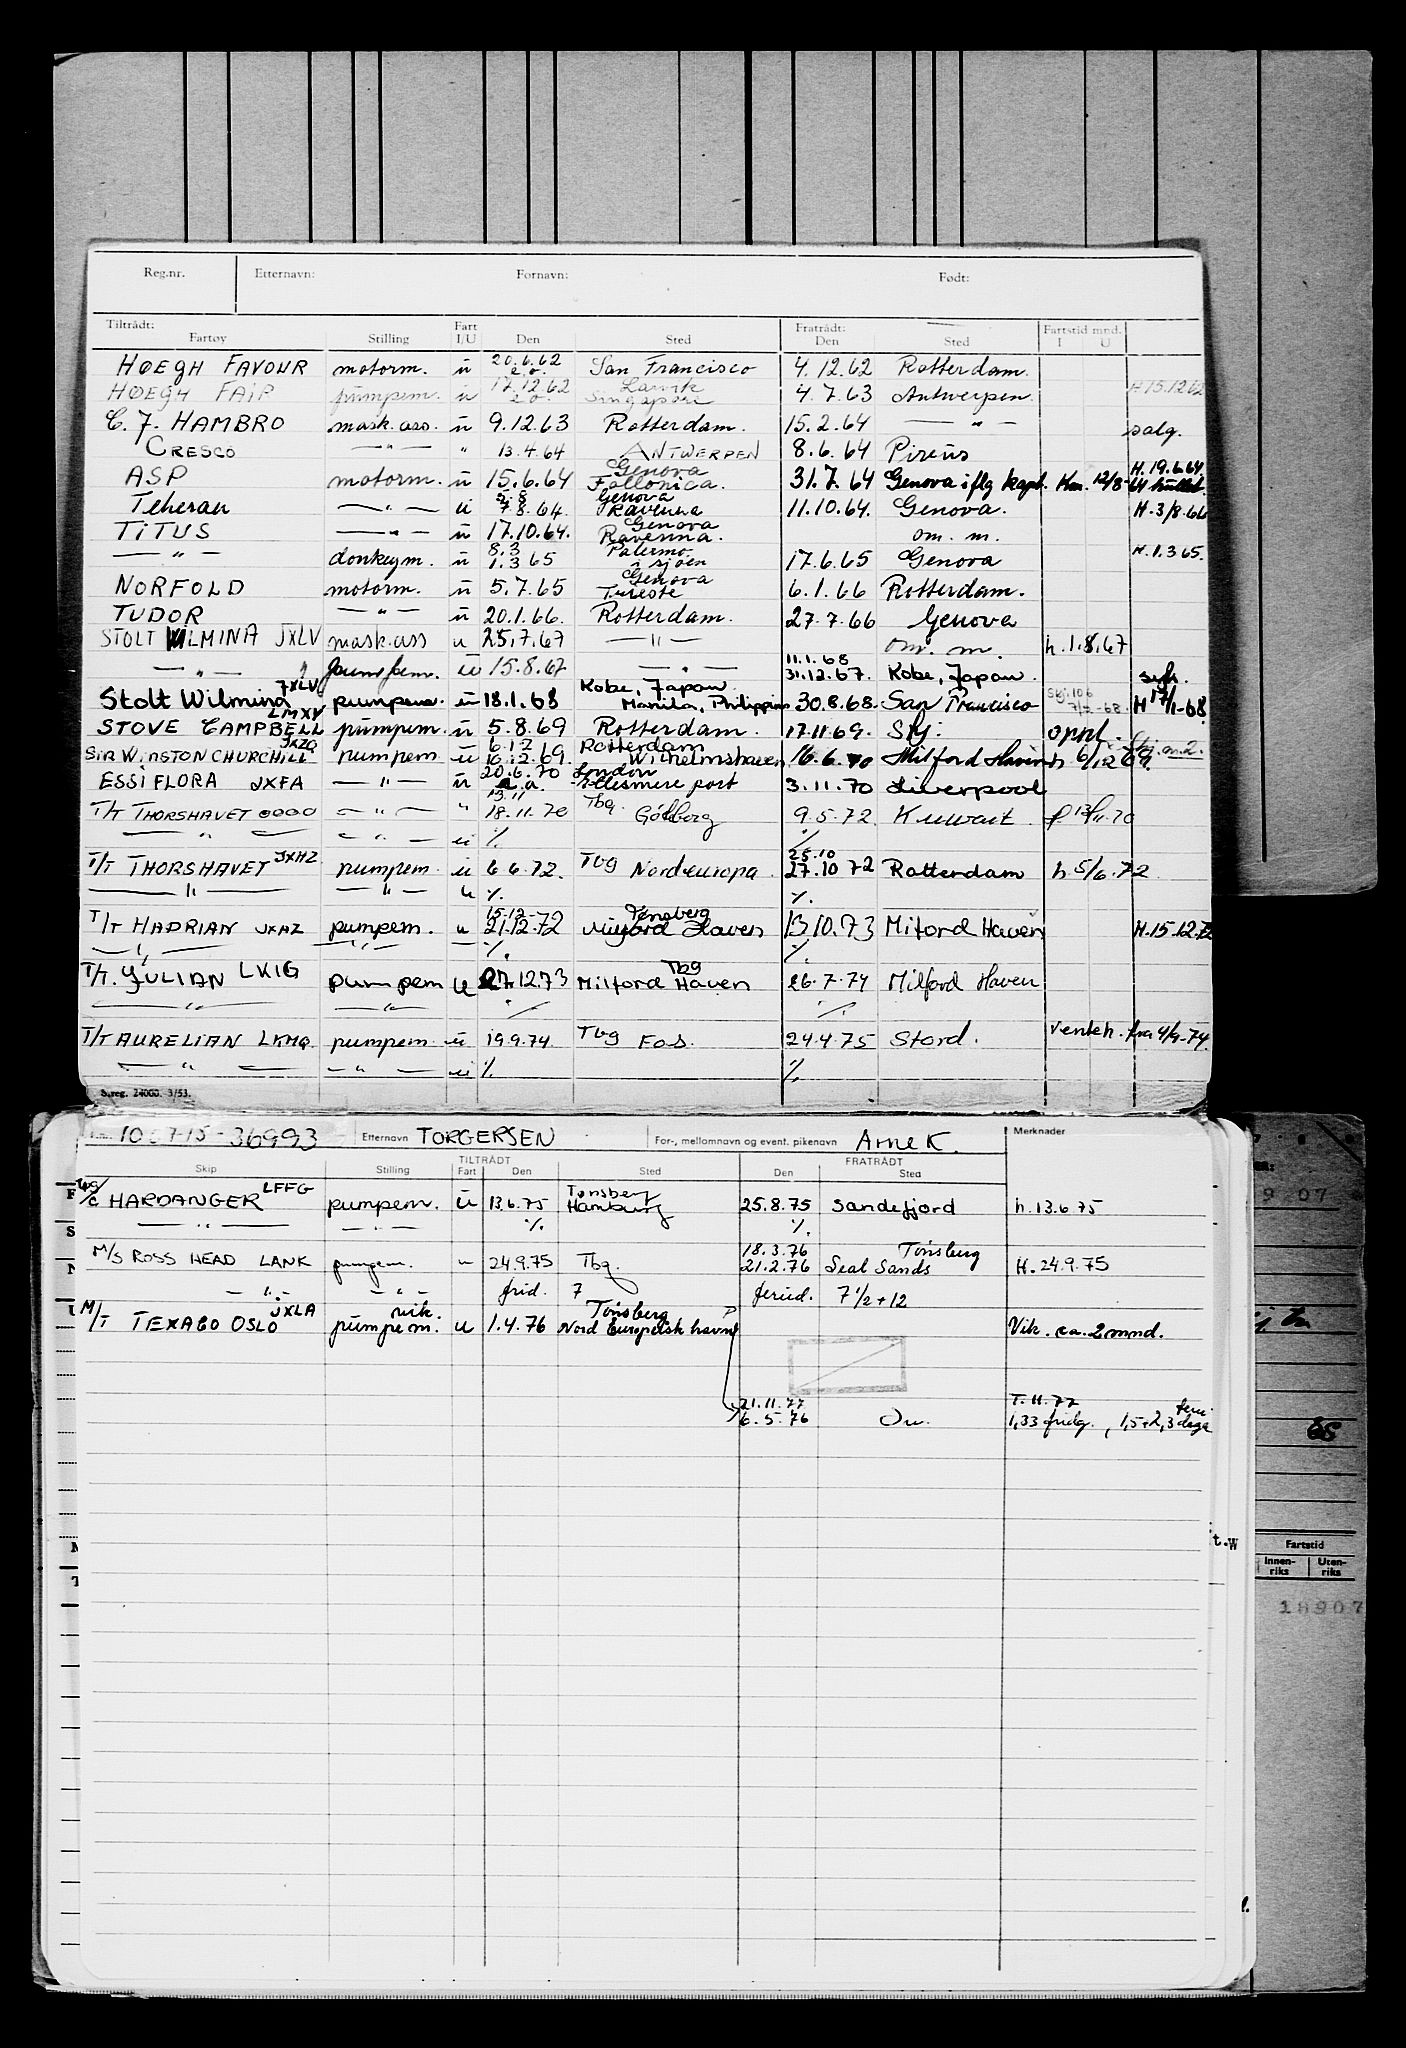 Reg.nr. Etternavn: Fornavn: Født:
Tiltrådt: Fart Fratrådt: Fartstid mnd.
Fartøy Stilling I/U Den Sted Den Sted I U
HØEGH FAVOUR motorm. u 20.6.62 e.o. San Francisco 4.12.62 Rotterdam.
HØEGH FAIR pumpem. u 17.12.62 e.o. Larvik Singapore 4.7.63 Antwerpen. H.15.12.62
C. J. HAMBRO mask.ass. u 9.12.63 Rotterdam. 15.2.64 — " — salg.
CRESCO — " — " 13.4.64 ANTWERPEN 8.6.64 Pireus
ASP motorm. u 15.6.64 Genova Follonica. 31.7.64 Genova i flg kapt. Km. 12/8-64 H.19.6.64
Teheran — " — u 5.8 7.8.64. Genova Ravenna 11.10.64. Genova. H.3/8.64
TITUS — " — u 17.10.64. Genova Ravenna. om. m.
— " — donkeym. u 8.3 1.3.65 Palermo i sjøen 17.6.65 Genova H.1.3.65.
NORFOLD motorm. u 5.7.65 Genova Trieste 6.1.66 Rotterdam.
TUDOR — " — u 20.1.66. Rotterdam. 27.7.66 Genova
STOLT WILMINA JXLV mask.ass u 25.7.67 — " — om. m. h.1.8.67
— " — " pumpem. u 15.8.67 — " — 11.1.68 31.12.67. Kobe, Japan.
Stolt Wilmina JXLV pumpem. u 18.1.68 Kobe, Japan Manila, Philippines 30.8.68. San Francisco H 17/1-68
STOVE CAMPBELL LMXV pumpem. u 5.8.69 Rotterdam. 17.11.69. Skj. oppl.
SIR WINSTON CHURCHILL JXZQ pumpem u 6.12 16.12.69. Rotterdam Wilhelmshaven 16.6.70 Milford Haven h 6/12 69.
ESSI FLORA JXFA — " — u 20.6.70 e.o. London Ellesmere port 3.11.70 Liverpool
T/T THORSHAVET OOOO — " — " 13.11 18.11.70 Tbg. Götborg 9.5.72. Kuwait f 13/11.70
— " — — " — u % %
T/T THORSHAVET JXHZ pumpem. u 6.6.72. Tbg Nordeuropa. 25.10 27.10.72 Rotterdam h.5/6.72
— " — — " — u % %
T/T HADRIAN JXAZ pumpem. u 15.12- 21.12.72 Tønsberg Milford Haven 13.10.73 Milford Haven H.15.12.72
— " — — " — % %
T/T. JULIAN LKIG pumpem u 27.12.73 Tbg Milford Haven 26.7.74 Milford Haven
— " — — " — % %
T/T AURELIAN LKMQ. pumpem. u 19.9.74. Tbg Fos. 24.4.75 Stord. Venteh. fra 4/9-74.
— " — — " — u % %
S.reg. 24000. 3/53.
36993 Etternavn TORGERSEN For-, mellomnavn og event. pikenavn Arne K. Merknader
TILTRÅDT FRATRÅDT
Skip Stilling Fart Den Sted Den Sted
HARDANGER LFFG pumpem. u 13.6.75 Tønsberg Hamburg 25.8.75 Sandefjord h.13.6.75
— " — — " — % %
M/S ROSS HEAD LANK pumpem. u 24.9.75 Tbg. 18.3.76 21.2.76 Tönsberg Seal Sands H. 24.9.75
— " — — " — frid. 7 feried. 7 1/2 + 12
M/T TEXACO OSLO JXLA vik. pumpem. u 1.4.76 Tönsberg Nord Europeisk havn Vik. ca. 2 mnd.
21.11.77 6.5.76 T.11.77 1,33 fridg., 1,5+2,3 ferie dage
t.w
Fartstid
Innen-riks Uten-riks
18907